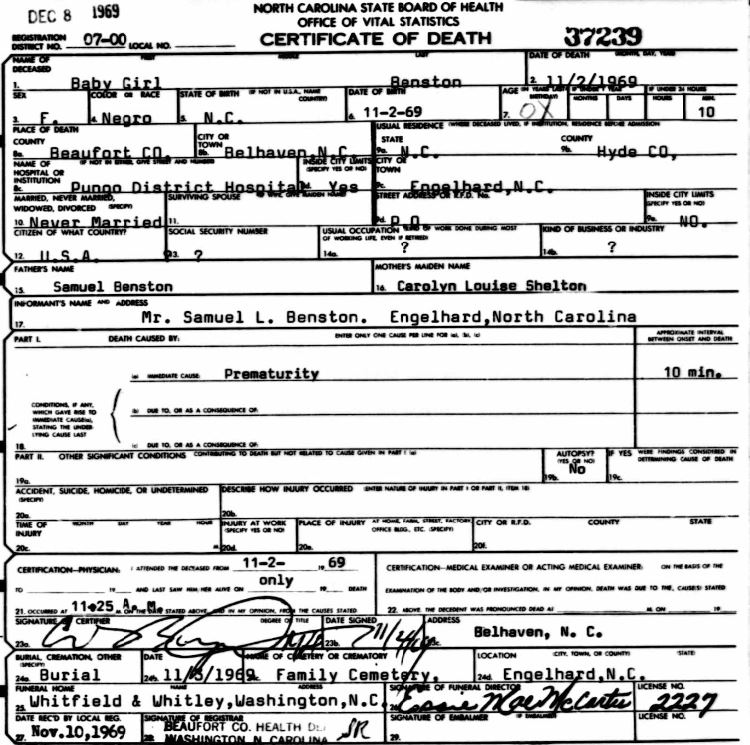 DEC 8 1969
NORTH CAROLINA STATE BOARD OF HEALTH
OFFICE OF VITAL STATISTICS
CERTIFICATE OF DEATH
37239
REGISTRATION DISTRICT NO. 07-00 LOCAL NO.
NAME OF DECEASED FIRST MIDDLE LAST DATE OF DEATH (MONTH, DAY, YEAR)
1. Baby Girl Benston 2. 11/2/1969
SEX COLOR OR RACE STATE OF BIRTH (IF NOT IN U.S.A., NAME COUNTRY) DATE OF BIRTH AGE (IN YEARS LAST BIRTHDAY) IF UNDER 1 YEAR MONTHS DAYS IF UNDER 24 HOURS HOURS MIN.
3. F. 4. Negro 5. N.C. 6. 11-2-69 7. 10
PLACE OF DEATH USUAL RESIDENCE (WHERE DECEASED LIVED, IF INSTITUTION, RESIDENCE BEFORE ADMISSION
COUNTY CITY OR TOWN STATE COUNTY
8a. Beaufort CO. 8b. Belhaven,N.C. 9a. N.C. 9b. Hyde CO,
NAME OF HOSPITAL OR INSTITUTION (IF NOT IN EITHER, GIVE STREET AND NUMBER) INSIDE CITY LIMITS (SPECIFY YES OR NO) CITY OR TOWN
8c. Pungo District Hospital 8d. Yes 9c. Engelhard,N.C.
MARRIED, NEVER MARRIED, WIDOWED, DIVORCED (SPECIFY) SURVIVING SPOUSE (IF WIFE, GIVE MAIDEN NAME) STREET ADDRESS OR R.F.D. No. INSIDE CITY LIMITS (SPECIFY YES OR NO)
10. Never Married 11. 9d. P.O. 9e. NO.
CITIZEN OF WHAT COUNTRY? SOCIAL SECURITY NUMBER USUAL OCCUPATION (KIND OF WORK DONE DURING MOST OF WORKING LIFE, EVEN IF RETIRED) KIND OF BUSINESS OR INDUSTRY
12. U.S.A. 13. ? 14a. ? 14b. ?
FATHER'S NAME MOTHER'S MAIDEN NAME
15. Samuel Benston 16. Carolyn Louise Shelton
INFORMANT'S NAME AND ADDRESS
17. Mr. Samuel L. Benston. Engelhard,North Carolina
PART I. DEATH CAUSED BY: ENTER ONLY ONE CAUSE PER LINE FOR (a), (b), (c) APPROXIMATE INTERVAL BETWEEN ONSET AND DEATH
(a) IMMEDIATE CAUSE: Prematurity 10 min.
CONDITIONS, IF ANY, WHICH GAVE RISE TO IMMEDIATE CAUSE(a), STATING THE UNDERLYING CAUSE LAST
(b) DUE TO, OR AS A CONSEQUENCE OF:
18. (c) DUE TO, OR AS A CONSEQUENCE OF:
PART II. OTHER SIGNIFICANT CONDITIONS CONTRIBUTING TO DEATH BUT NOT RELATED TO CAUSE GIVEN IN PART I (a) AUTOPSY? (YES OR NO) IF YES WERE FINDINGS CONSIDERED IN DETERMINING CAUSE OF DEATH
19a. 19b. No 19c.
ACCIDENT, SUICIDE, HOMICIDE, OR UNDETERMINED (SPECIFY) DESCRIBE HOW INJURY OCCURRED (ENTER NATURE OF INJURY IN PART I OR PART II, ITEM 18)
20a. 20b.
TIME OF INJURY MONTH DAY YEAR HOUR INJURY AT WORK (SPECIFY YES OR NO) PLACE OF INJURY AT HOME, FARM, STREET, FACTORY, OFFICE BLDG., ETC. (SPECIFY) CITY OR R.F.D. COUNTY STATE
20c. M. 20d. 20e. 20f.
CERTIFICATION—PHYSICIAN: I ATTENDED THE DECEASED FROM 11-2- 19 69 CERTIFICATION—MEDICAL EXAMINER OR ACTING MEDICAL EXAMINER: ON THE BASIS OF THE
TO 19 AND LAST SAW HIM/HER ALIVE ON only 19 DEATH EXAMINATION OF THE BODY AND/OR INVESTIGATION, IN MY OPINION, DEATH WAS DUE TO THE, CAUSE(S) STATED
21. OCCURRED AT 11:25 A. M. ON THE DATE STATED ABOVE, AND IN MY OPINION, FROM THE CAUSES STATED 22. ABOVE. THE DECEDENT WAS PRONOUNCED DEAD AT M. ON 19
SIGNATURE OF CERTIFIER DEGREE OR TITLE DATE SIGNED ADDRESS
23a. 23b. 23c. Belhaven, N. C.
BURIAL, CREMATION, OTHER (SPECIFY) DATE NAME OF CEMETERY OR CREMATORY LOCATION (CITY, TOWN, OR COUNTY) (STATE)
24a. Burial 24b. 11/3/1969 24c. Family Cemetery. 24d. Engelhard,N.C.
FUNERAL HOME NAME ADDRESS SIGNATURE OF FUNERAL DIRECTOR LICENSE NO.
25. Whitfield & Whitley,Washington,N.C. 26. Mae McCarter 2227
DATE REC'D BY LOCAL REG. SIGNATURE OF REGISTRAR SIGNATURE OF EMBALMER (IF EMBALMED) LICENSE NO.
27. Nov.10,1969 28. BEAUFORT CO. HEALTH DE 29.
WASHINGTON, N. CAROLINA